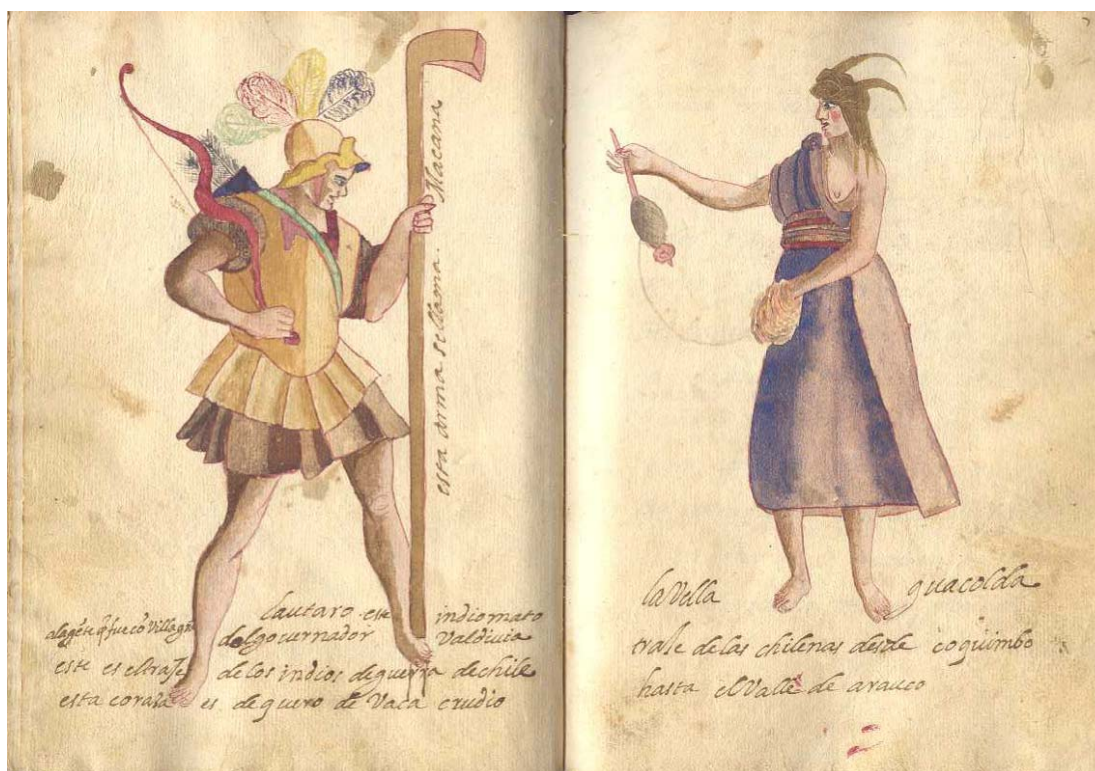 esta arma se llama. Macana
lautaro. este indio mato
alagẽte q̃ fue cõ Villagrã del governador Valdivia
este es el traje de los indios de guerra de chile
esta corasa es de quero de Vaca crudio
la Vella guacolda
traje de las chilenas desde coquimbo
hasta el Valle de arauco